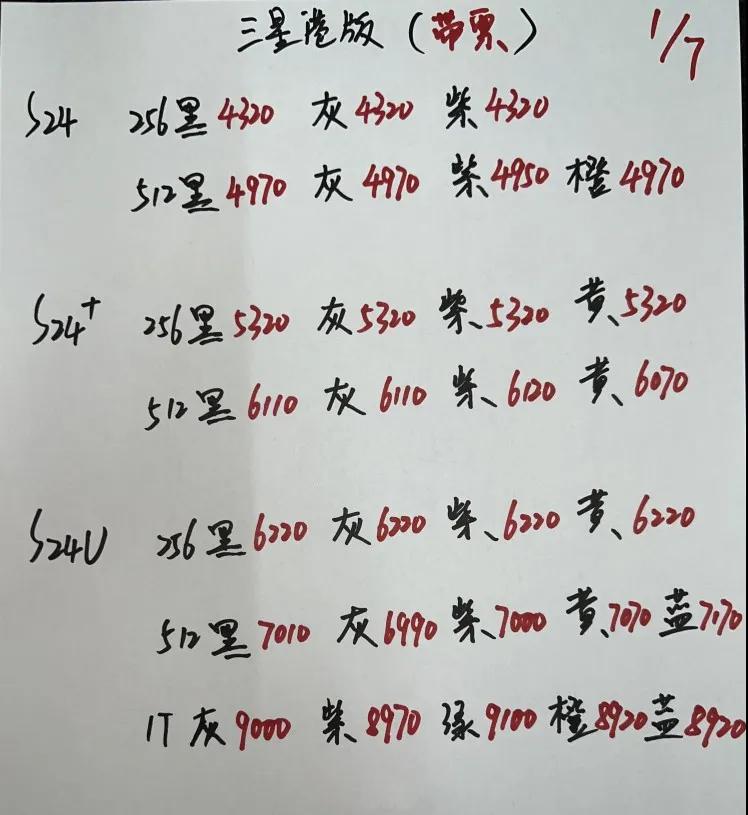 三星港版（带票） 1/7
S24 256黑4320 灰4320 紫4320
512黑4970 灰4970 紫4950 橙4970
S24+ 256黑5320 灰5320 紫5320 黄5320
512黑6110 灰6110 紫6120 黄6070
S24U 256黑6220 灰6220 紫6220 黄6220
512黑7010 灰6990 紫7000 黄7070 蓝7170
1T灰9000 紫8970 绿9100 橙8920 蓝8920